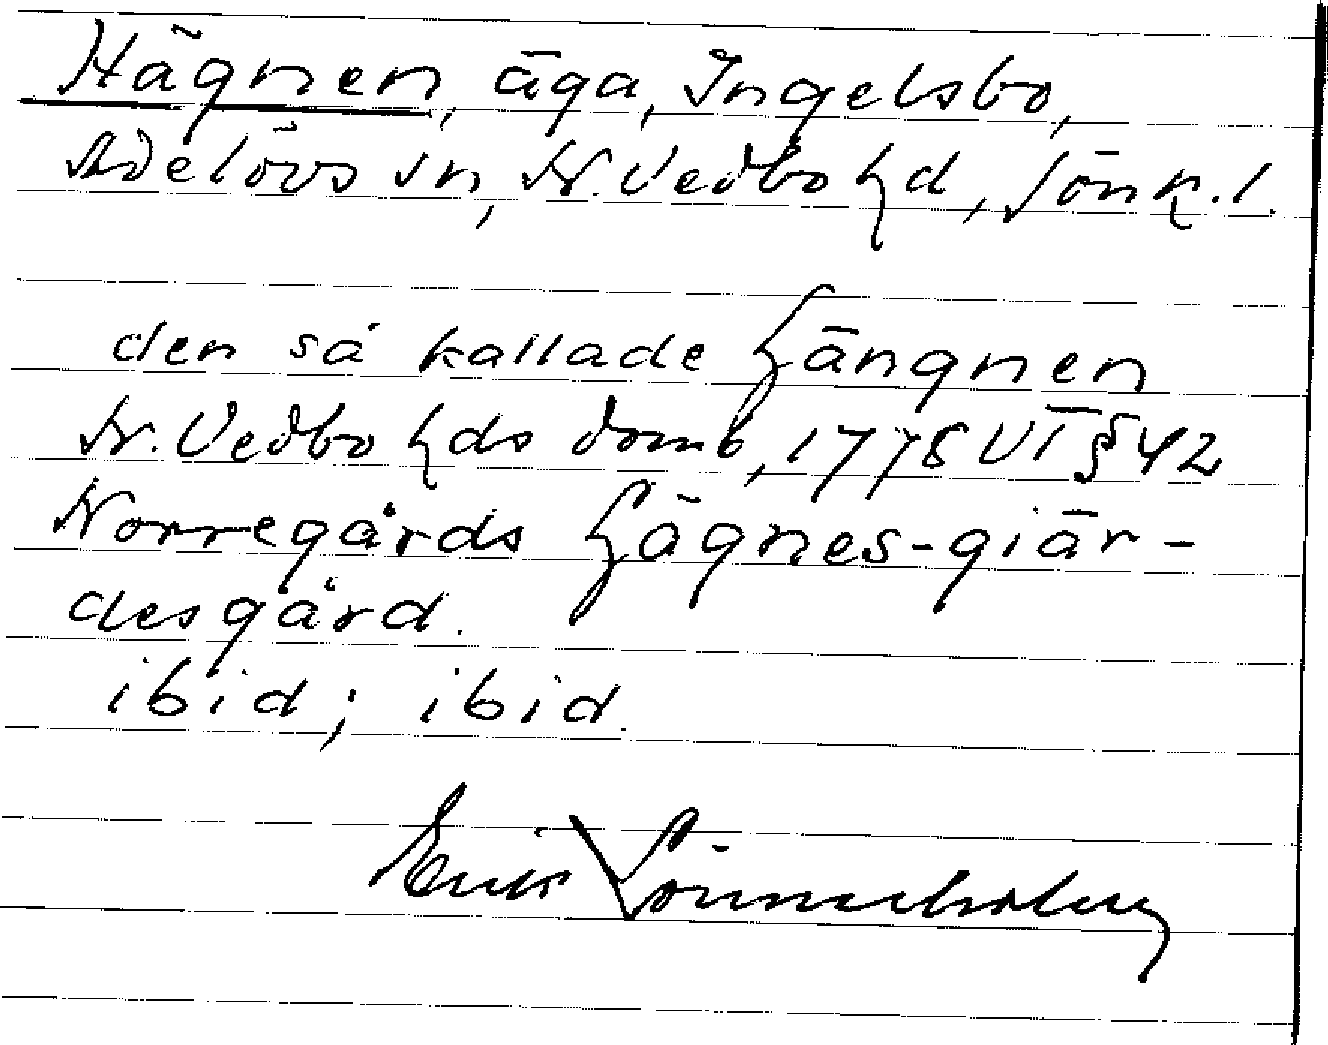 Hägnen, äga, Ingelsbo,
Adelövs sn, N. Vedbo hd, Jönk. l.
den så kallade Hängnen
N. Vedbo hds domb, 1778 VI § 42
Norregårds Hägnes-giär-
desgård.
ibid; ibid.
Erik Lönnerholm